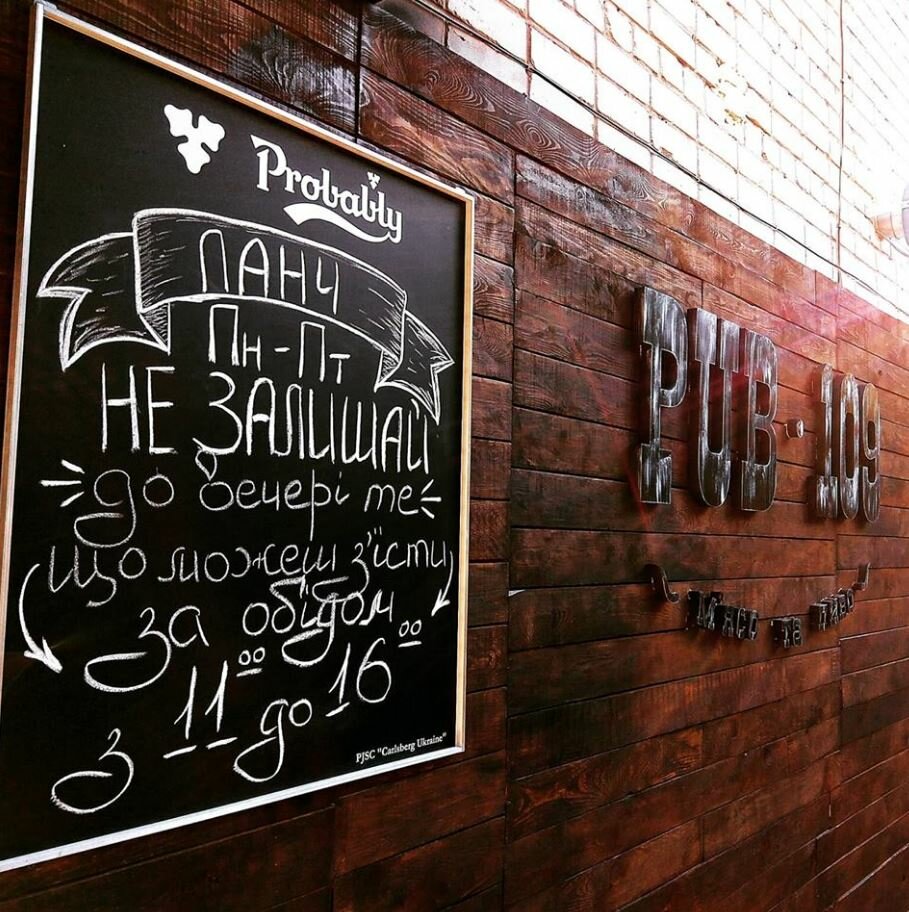 Probably
ЛАНЧ
Пн-Пт
НЕ ЗАЛИШАЙ
до вечері те
що можеш з'їсти
за обідом
з 11⁰⁰ до 16⁰⁰
PJSC "Carlsberg Ukraine"
PUB·109
М'ясо та пиво